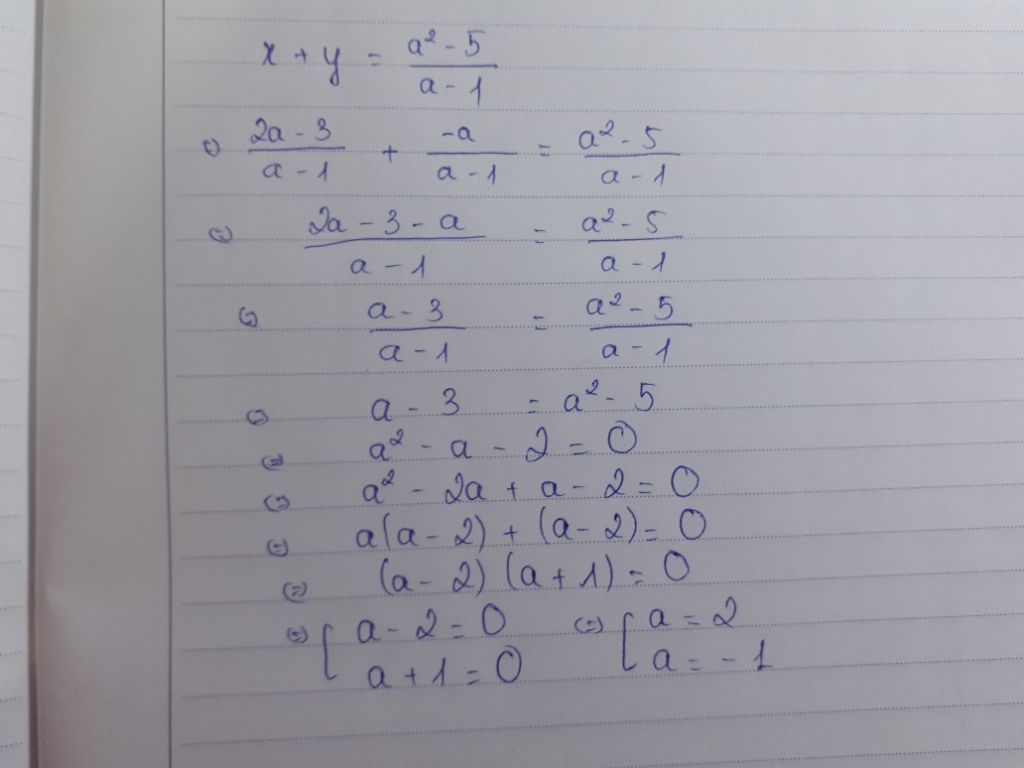 x + y = (a² - 5)/(a - 1)
⇔ (2a - 3)/(a - 1) + (-a)/(a - 1) = (a² - 5)/(a - 1)
⇔ (2a - 3 - a)/(a - 1) = (a² - 5)/(a - 1)
⇔ (a - 3)/(a - 1) = (a² - 5)/(a - 1)
⇔ a - 3 = a² - 5
⇔ a² - a - 2 = 0
⇔ a² - 2a + a - 2 = 0
⇔ a(a - 2) + (a - 2) = 0
⇔ (a - 2) (a + 1) = 0
⇔ [ a - 2 = 0 ⇔ [ a = 2
a + 1 = 0 a = - 1